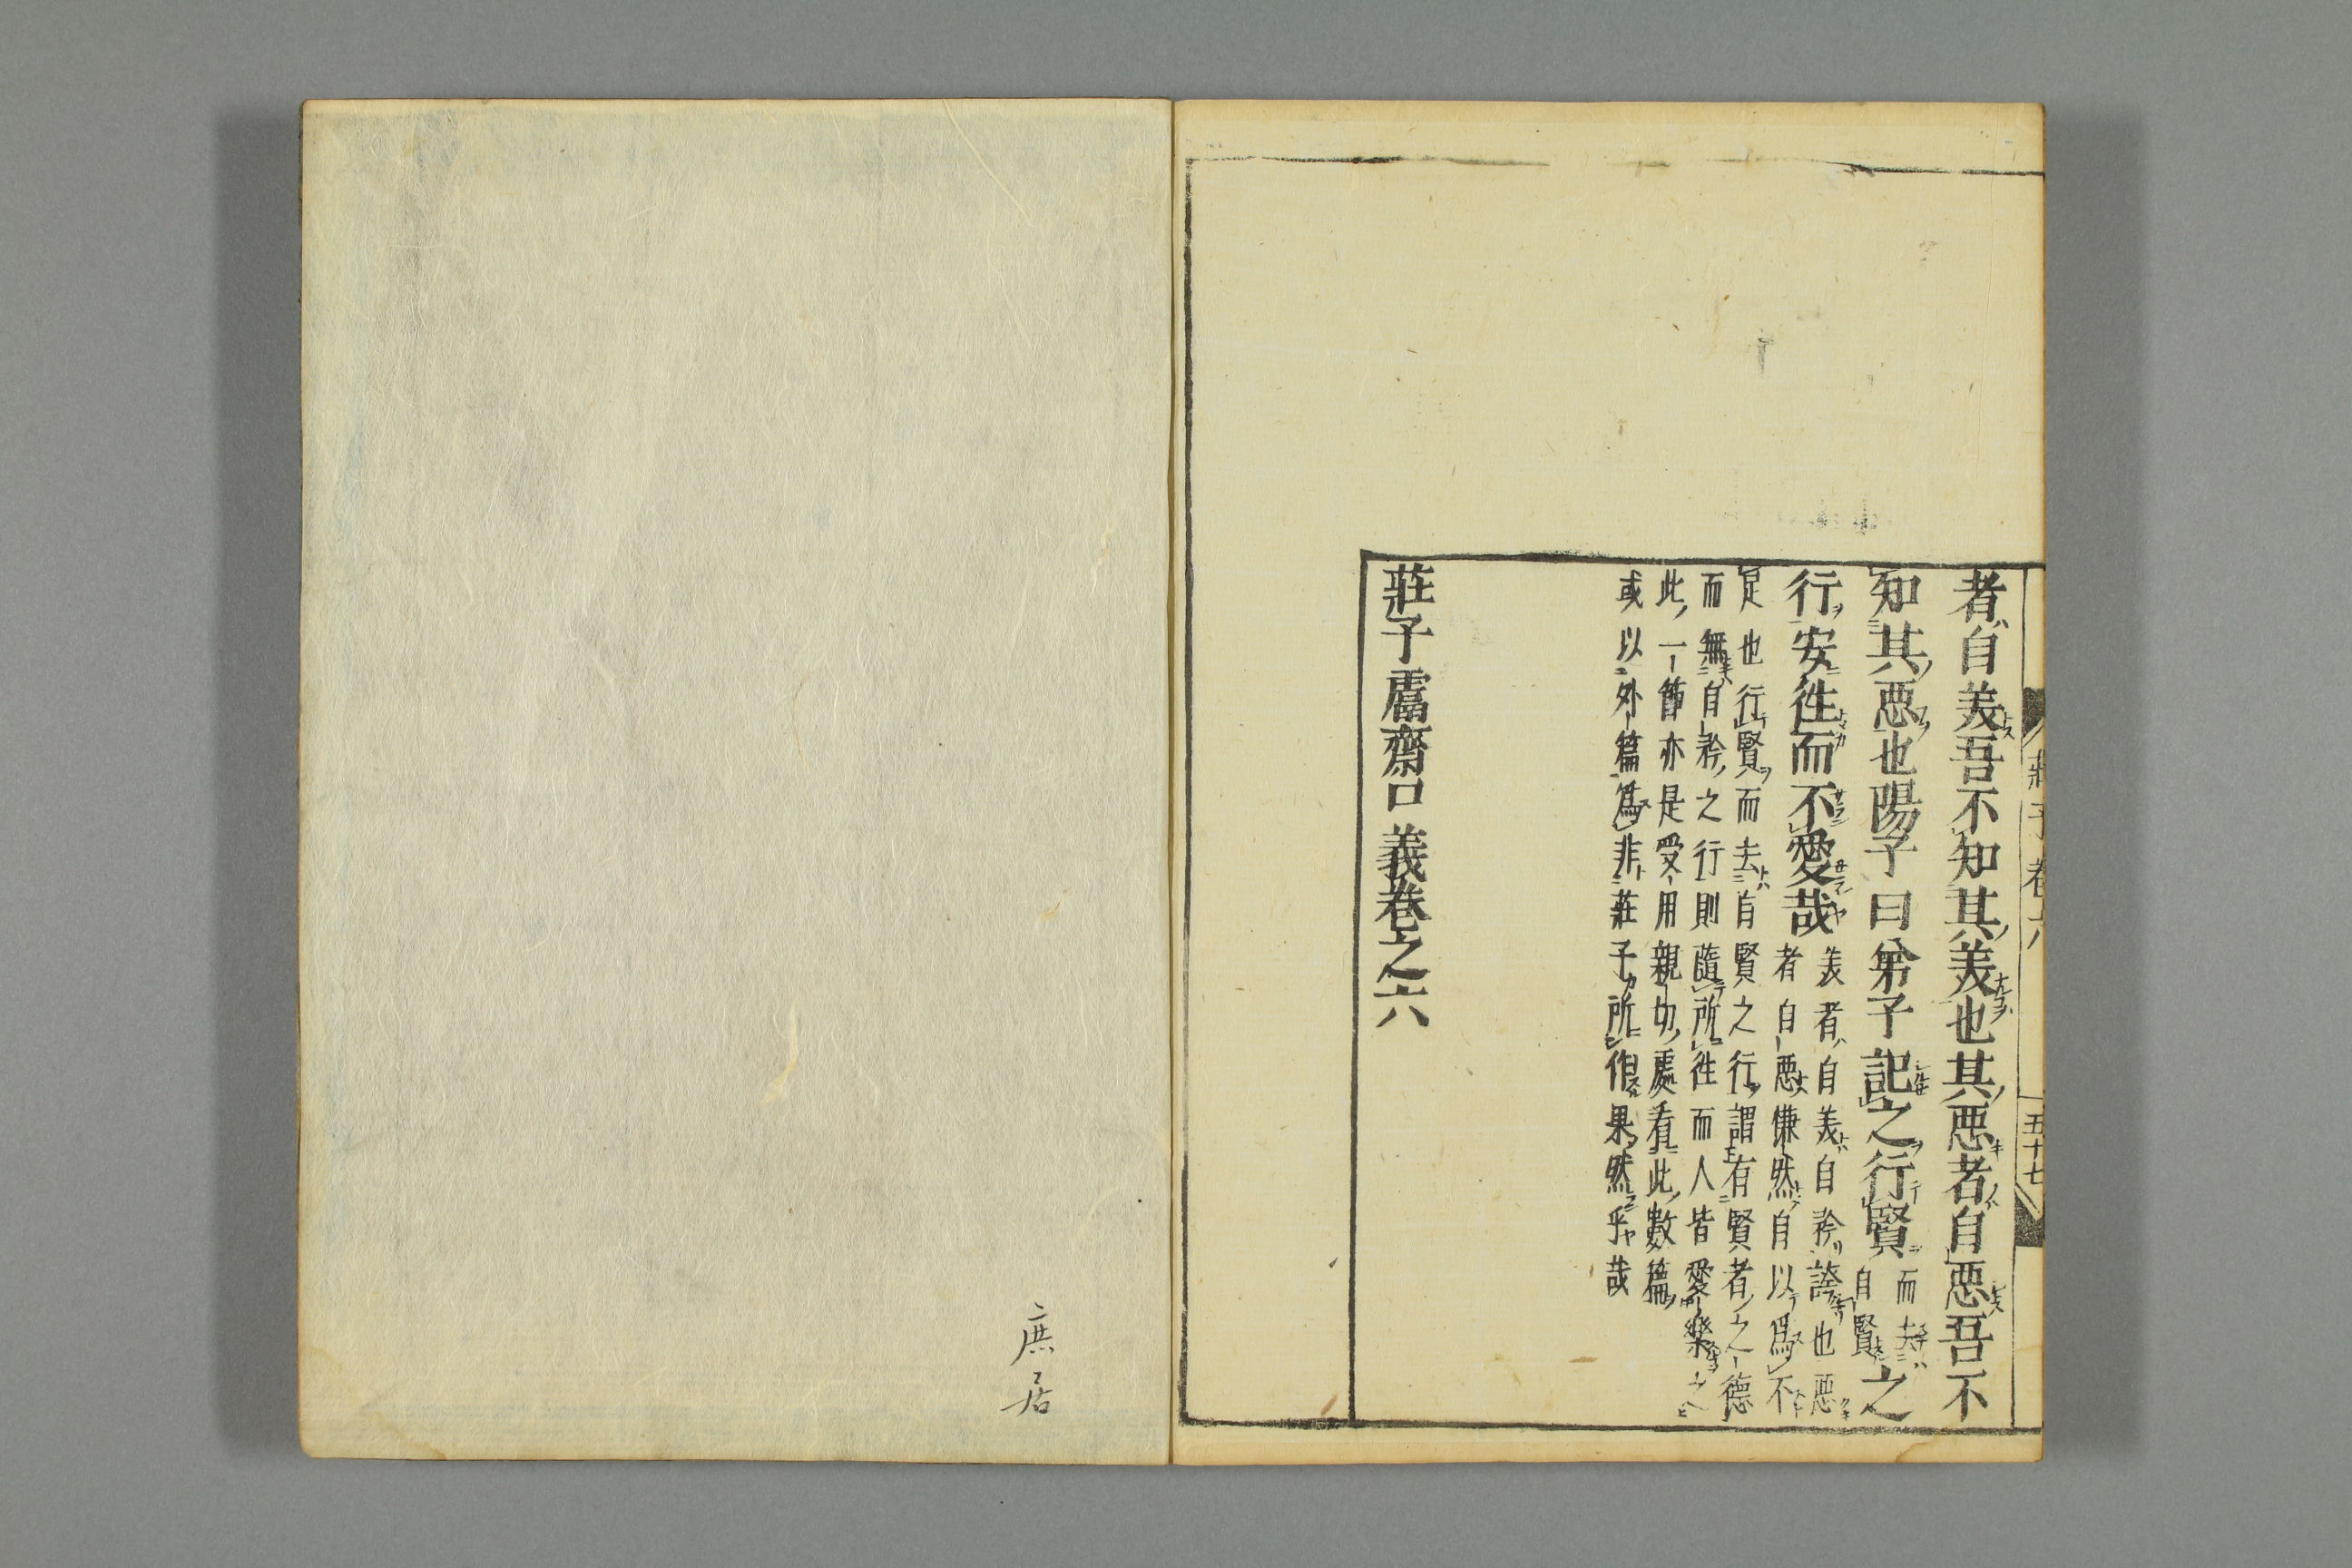 莊子卷六 五十七
者自美吾不知其美也其惡者自惡吾不
知其惡也陽子曰弟子記之行賢而去自賢之
行安徃而不愛哉
美者自美自矜誇也惡
者自惡慊然自以爲不
足也行賢而去自賢之行謂有賢者之德
而無自矜之行則隨所徃而人皆愛樂之
此一節亦是受用親切處看此數篇
或以外篇爲非莊子所作果然乎哉
莊子鬳齋口義卷之六
庶居